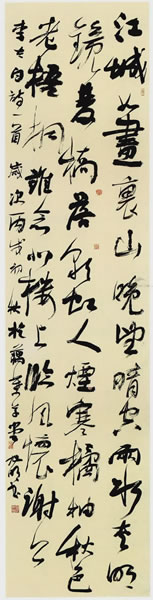 江城如畫裏山晚望晴空兩水夾明
鏡雙橋落彩虹人煙寒橘柚秋色
老梧桐誰念北樓上臨風懷謝公
李太白詩一首 歲次丙戌初秋於